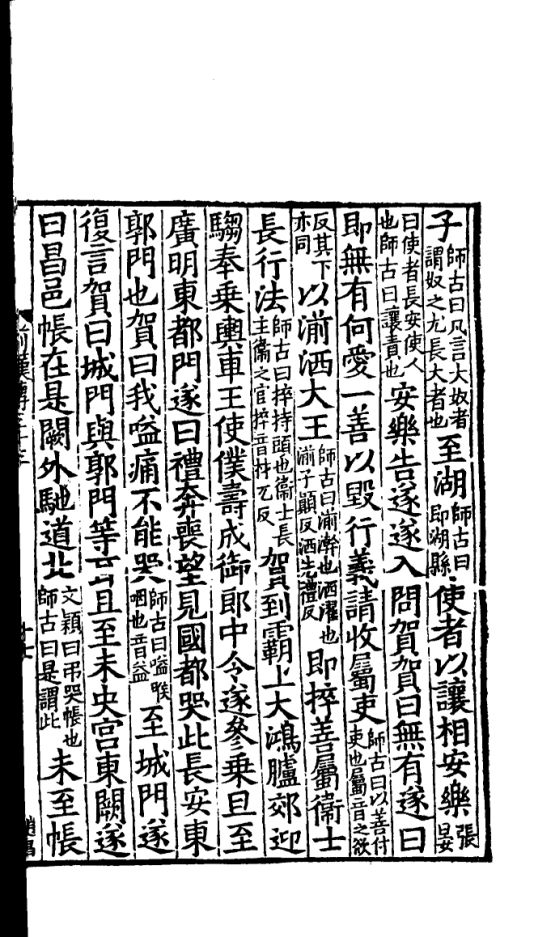 子師古曰凡言大奴者謂奴之尤長大者也至湖師古曰即湖縣使者以讓相安樂張晏
曰使者長安使人也師古曰讓責也安樂告遂遂入問賀賀曰無有遂曰
即無有何愛一善以毀行義請收屬吏師古曰以善付吏也屬音之欲
反其下亦同以湔洒大王師古曰湔澣也洒濯也湔子顚反洒先禮反即捽善屬衞士
長行法師古曰捽持頭也衞士長主衞之官捽音材兀反賀到霸上大鴻臚郊迎
騶奉乘輿車王使僕壽成御郎中令遂參乘旦至
廣明東都門遂曰禮奔喪望見國都哭此長安東
郭門也賀曰我嗌痛不能哭師古曰嗌喉咽也音益至城門遂
復言賀曰城門與郭門等耳且至未央宮東闕遂
曰昌邑帳在是闕外馳道北文穎曰弔哭帳也師古曰是謂此未至帳